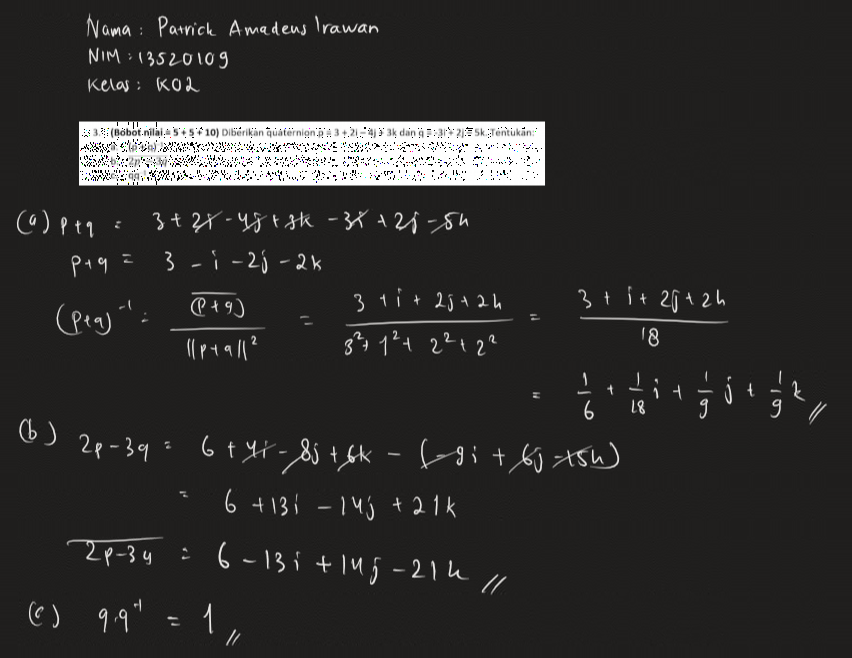 Nama : Patrick Amadeus Irawan
NIM : 13520109
Kelas : K02
3. (Bobot nilai = 5 + 5 + 10) Diberikan quaternion p = 3 + 2i – 4j + 3k dan q = -3i + 2j – 5k. Tentukan:
(a) p+q = 3 + 2i - 4j + 3k - 3i + 2j - 5k
p+q = 3 - i - 2j - 2k
(p+q)⁻¹ = \overline{(p+q)} / ||p+q||² = (3 + i + 2j + 2k) / (3² + 1² + 2² + 2²) = (3 + i + 2j + 2k) / 18
= 1/6 + 1/18 i + 1/9 j + 1/9 k //
(b) 2p-3q = 6 + 4i - 8j + 6k - (-9i + 6j - 15k)
= 6 + 13i - 14j + 21k
\overline{2p-3q} = 6 - 13i + 14j - 21k //
(c) q.q⁻¹ = 1 //